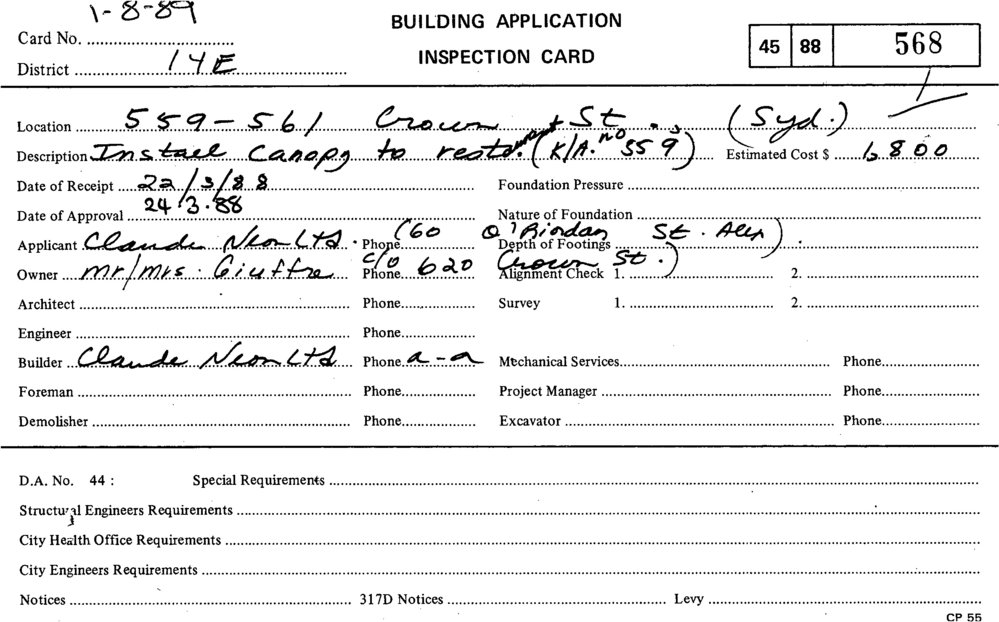 1-8-89
BUILDING APPLICATION
INSPECTION CARD
Card No.
45 88 568
District 14E
Location 559-561 Crown St. (Syd.)
Description Install Canopy to restr. (K/A. no 559) Estimated Cost $ 6800
Date of Receipt 22/3/88 Foundation Pressure
Date of Approval 24.3.88 Nature of Foundation
Applicant Claude Neon Ltd. Phone (60 O'Riordan St. Alex) Depth of Footings
Owner Mr/Mrs. Giuffre Phone c/o 620 Crown St.) Alignment Check 1. 2.
Architect Phone Survey 1. 2.
Engineer Phone
Builder Claude Neon Ltd Phone a-a Mechanical Services Phone
Foreman Phone Project Manager Phone
Demolisher Phone Excavator Phone
D.A. No. 44 : Special Requirements
Structural Engineers Requirements
City Health Office Requirements
City Engineers Requirements
Notices 317D Notices Levy
CP 55